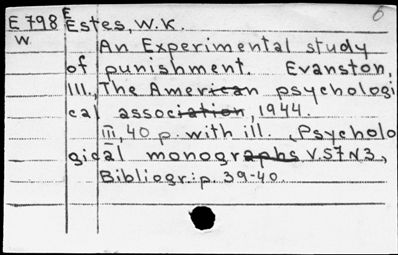 6
E 798 E Estes, W.K.
W.
An Experimental study
of punishment. Evanston,
Ill., The American psychologi
cal association, 1944.
III, 40 p. with ill. (Psycholo
gical monographs V.57N3,
Bibliogr.: p. 39-40.